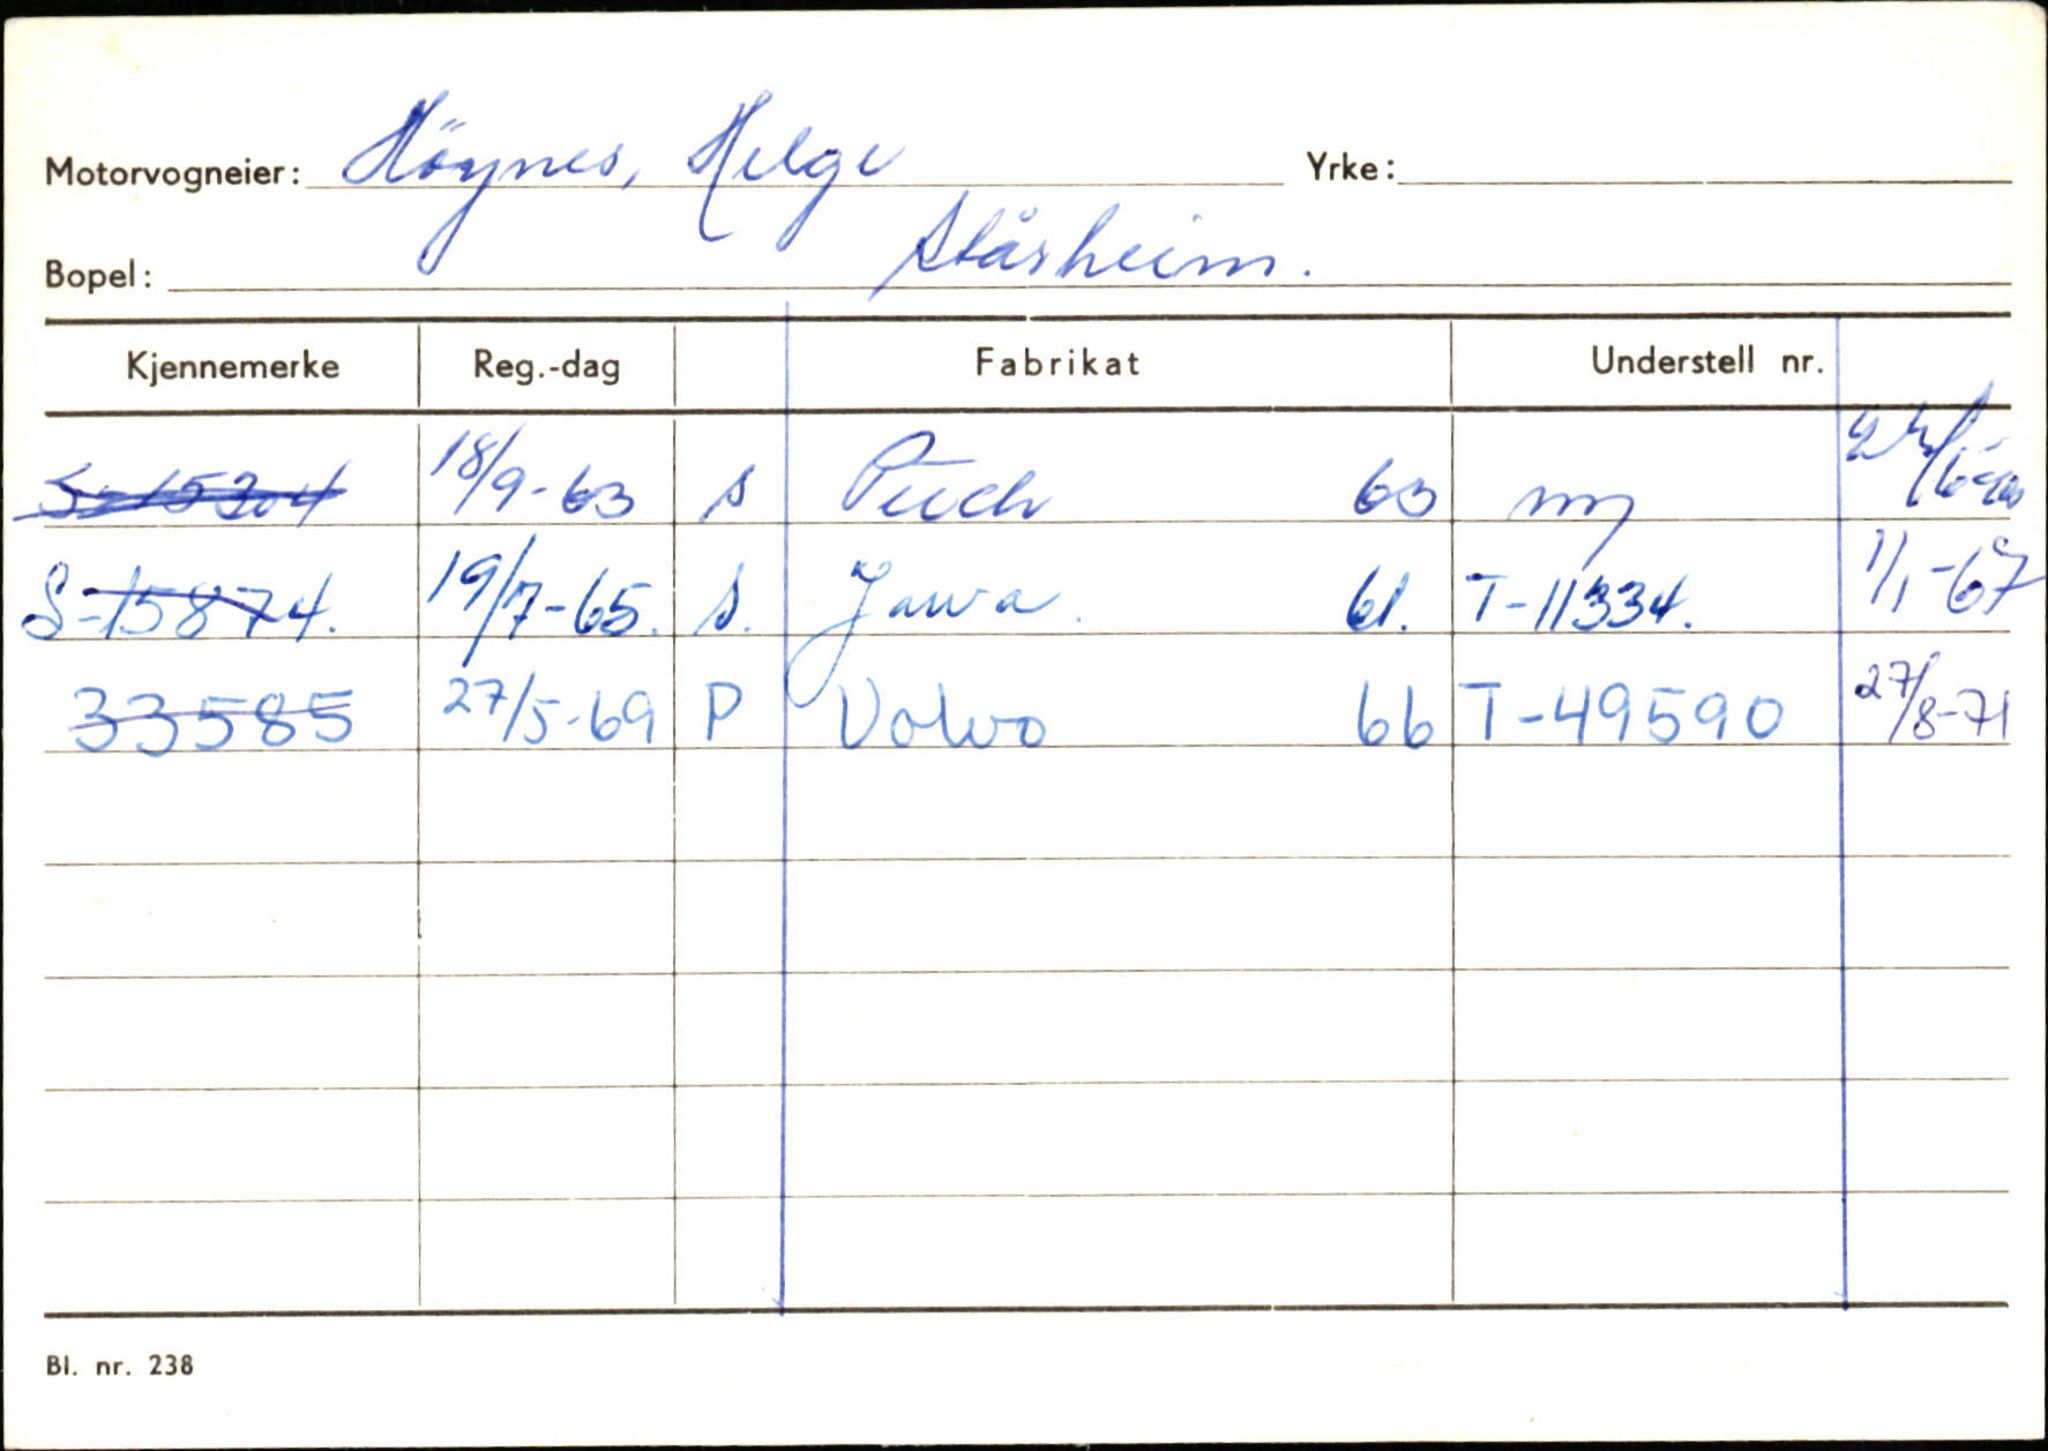 Motorvogneier: Höynes, Helge Yrke:
Bopel: Stårheim.
Kjennemerke Reg.-dag Fabrikat Understell nr.
S-15304 18/9-63 s Puch 63 ny
S-15874. 19/7-65. s. Jawa. 61. T-11334. 1/1-67
33585 27/5-69 P Volvo 66 T-49590 27/8-71
Bl. nr. 238